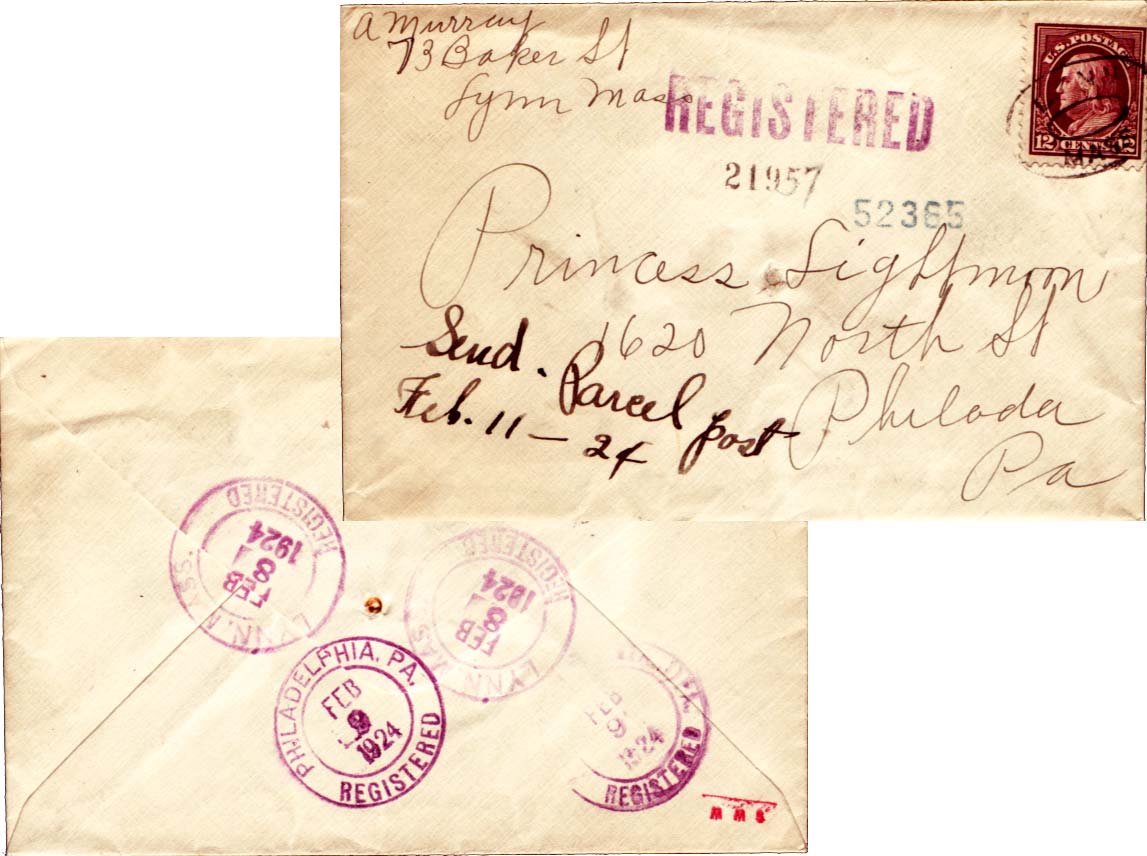 A Murray
73 Baker St
Lynn Mass
REGISTERED
21957
52365
U.S. POSTAGE
12 CENTS 12
MASS
Princess Lightmoon
1620 North St
Philada
Pa
Send. Parcel post
Feb. 11 - 24
REGISTERED
FEB
8
1924
LYNN, MASS.
REGISTERED
FEB
8
1924
LYNN MAS
PHILADELPHIA, PA.
FEB
9
1924
REGISTERED
FEB
9
1924
REGISTERED